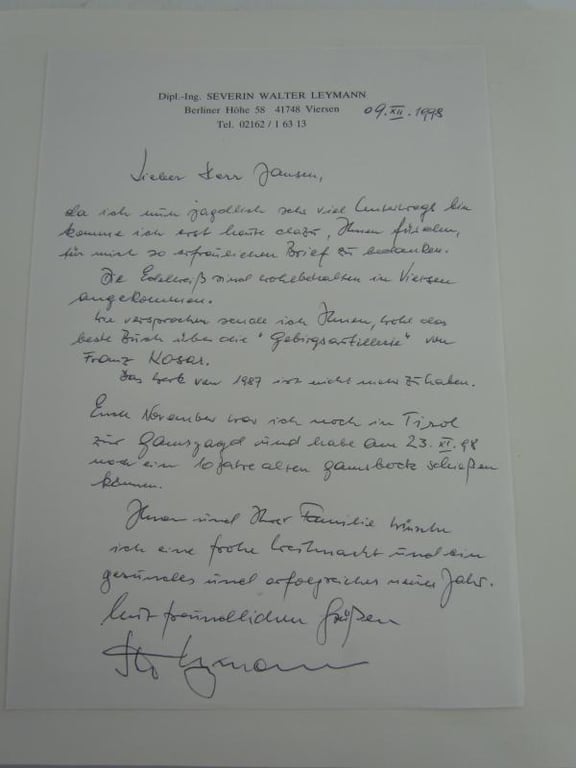 Dipl.-Ing. SEVERIN WALTER LEYMANN
Berliner Höhe 58 41748 Viersen
Tel. 02162 / 1 63 13
09. XII. 1998
Lieber Herr Jansen,
da ich nun jagdlich sehr viel unterwegs bin
komme ich erst heute dazu, Ihnen für den,
für mich so erfreulichen Brief zu bedanken.
Die Edelweiß sind wohlbehalten in Viersen
angekommen.
Wie versprochen sende ich Ihnen, wohl das
beste Buch über die "Gebirgsartillerie" von
Franz Kosar.
Das Werk von 1987 ist nicht mehr zu haben.
Ende November war ich noch in Tirol
zur Gamsjagd und habe am 23. XI. 98
noch ein 10 Jahre alten Gamsbock schießen
können.
Ihnen und Ihrer Familie wünsche
ich eine frohe Weihnacht und ein
gesundes und erfolgreiches neues Jahr.
Mit freundlichen Grüßen
Leymann